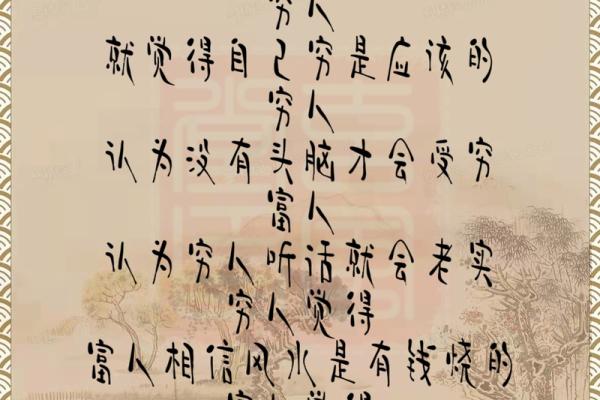 穷人
就觉得自己穷是应该的
穷人
认为没有头脑才会受穷
富人
认为穷人听话就会老实
穷人觉得
富人相信风水是有钱烧的
穷人觉得